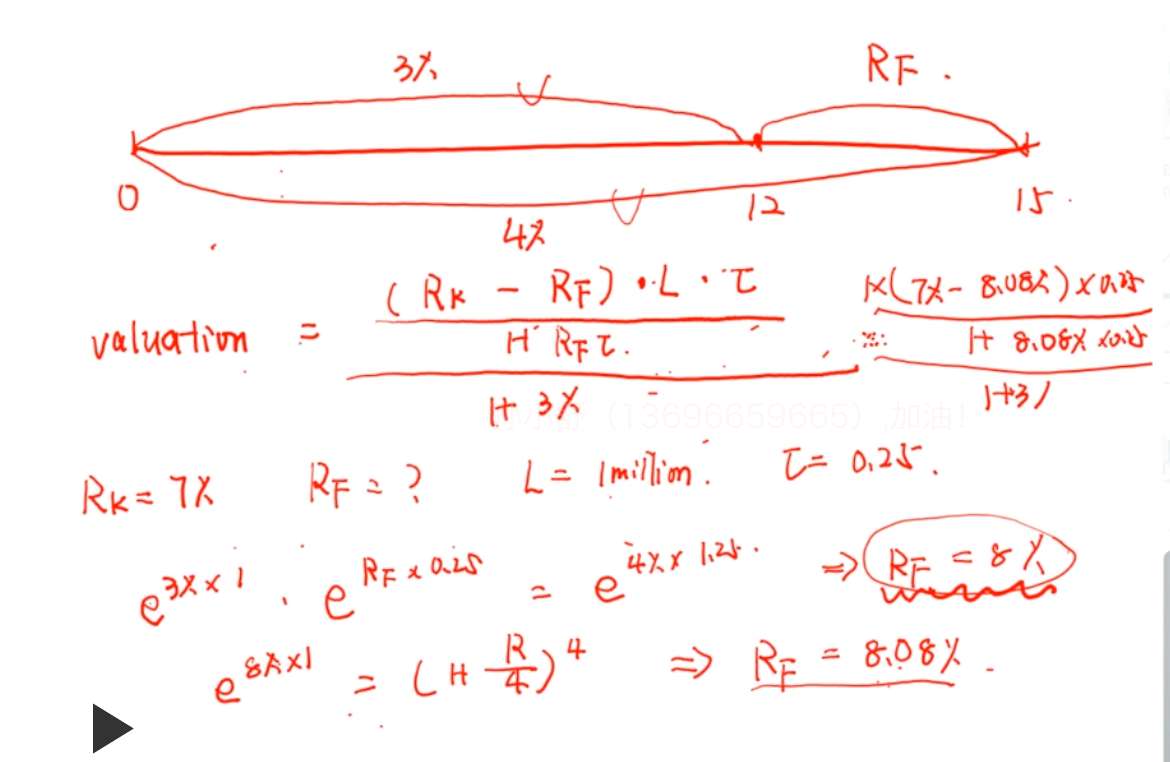 3% RF.
0 12 15.
4%
valuation = (RK - RF)·L·τ / 1+ RFτ. / 1+ 3% = 1×(7% - 8.08%)×0.25 / 1+ 8.08%×0.25 / 1+3%
(13696659665),加油!
RK = 7% RF = ? L = 1 million. τ = 0.25.
e^{3%×1} · e^{RF×0.25} = e^{4%×1.25}. ⇒ RF = 8%
e^{8%×1} = (1+ R/4)^4 ⇒ RF = 8.08%.